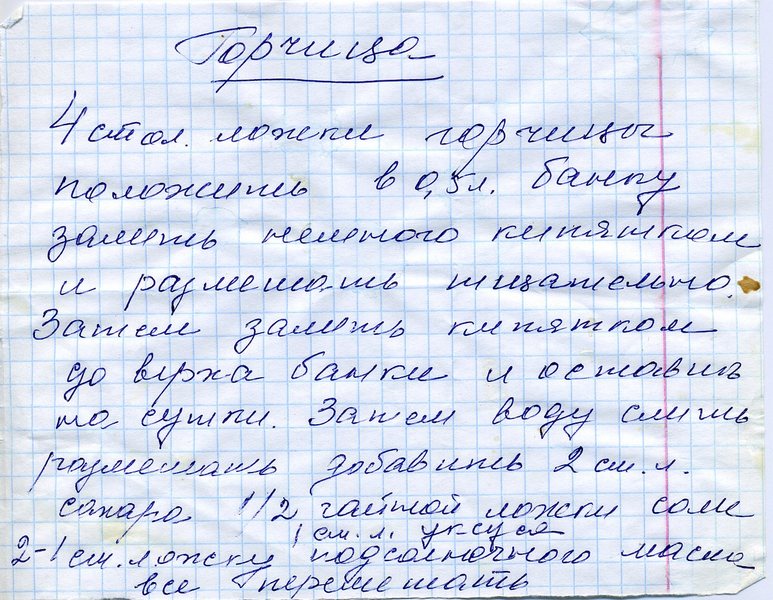 Горчица
4 стол. ложки горчицы
положить в 0,5л. банку
залить немного кипятком
и размешать тщательно.
Затем залить кипятком
до верха банки и оставить
на сутки. Затем воду слить
размешать добавить 2 ст. л.
сахара 1/2 чайной ложки соли
1 ст. л. уксуса
2-1 ст. ложку подсолночного масла
все перемешать